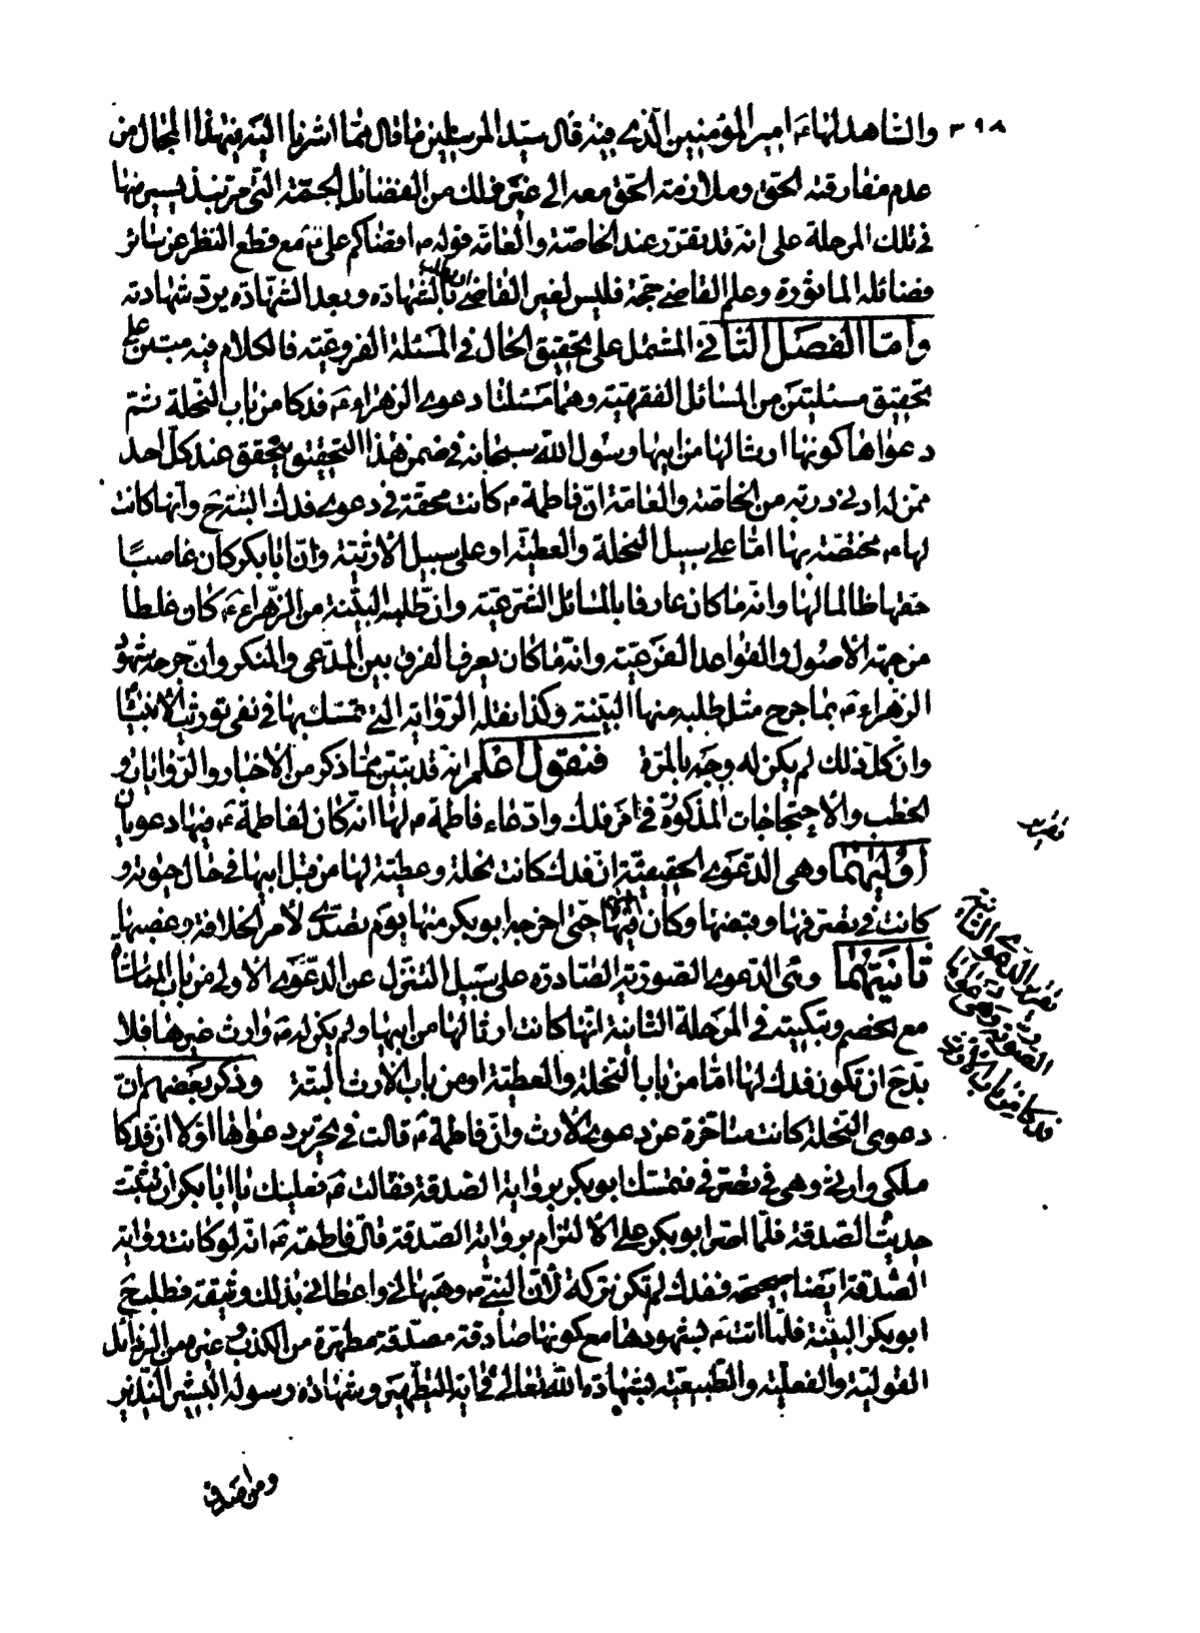 ٣٩٨
والشاهد لها ع امير المؤمنين الذي فيه قال سيد المرسلين ما قال مما اشرنا اليه في هذا المجال من
عدم مفارقته الحق وملازمة الحق معه الى غير ذلك من الفضائل الجمة التي مر نبذ يسير منها
في تلك المرحلة على انه قد تقرر عند الخاصة والعامة قوله ص اقضاكم علي ع مع قطع النظر عن سائر
فضائله المأثورة وعلم القاضي حجة فليس لغير القاضي بالشهادة وبعد الشهادة يرد شهادته
واما الفصل الثاني المشتمل على تحقيق الحال في المسئلة الفروعية فالكلام فيه مبتن على
تحقيق مسئلتين من المسائل الفقهية وهما مسئلتا دعوى الزهراء ع فدكا من باب النحلة ثم
دعواها كونها ارثا لها من ابيها رسول الله سبحانه في ضمن هذا التحقيق يتحقق عند كل احد
ممن له ادنى دربه من الخاصة والعامة ان فاطمة ع كانت محقة في دعوى فدك البتة وانها كانت
لها ع مختصة بها اما على سبيل النحلة والعطية او على سبيل الارثية وان ابا بكر كان غاصبا
حقها ظالما لها وانه ما كان عارفا بالمسائل الشرعية وان طلبه البينة من الزهراء ع كان غلطا
من جهة الاصول والقواعد الفرعية وانه ما كان يعرف الفرق بين المدعي والمنكر وان جرحه شهود
الزهراء ع بما جرح مثل طلبه منها البينة وكذا نقله الرواية التي تمسك بها في نفي توريث الانبياء
وان كل ذلك لم يكن له وجه بالمرة فنقول اعلم انه قد تبين مما ذكر من الاخبار والروايات و
الخطب والاحتجاجات المذكورة في امر فدك وادعاء فاطمة ع لها انه كان لفاطمة ع فيها دعويان
اوليهما وهي الدعوى الحقيقية ان فدك كانت نحلة وعطية لها من قبل ابيها في حال حيوته و
كانت في تصرفها وقبضها وكان فيها حتى اخرجه ابو بكر منها يوم تصدى لامر الخلافة وغصبها
ثانيتهما وهي الدعوى الصورية الصادرة على سبيل التنزل عن الدعوى الاولى من باب المماشاة
مع الخصم وتبكيته في المرحلة الثانية انها كانت ارثا لها من ابيها ولم يكن له ع وارث غيرها فلا
بد ح ان تكون فدك لها اما من باب النحلة والعطية او من باب الارث البتة وذكر بعضهم ان
دعوى النحلة كانت متاخرة عن دعوى الارث وان فاطمة ع قالت في تحرير دعواها اولا ان فدكا
ملكي وارثي وهي في تصرفي فتمسك ابو بكر برواية الصدقة فقالت ع فعليك يا ابا بكر ان تثبت
حديث الصدقة فلما اصر ابو بكر على الالتزام برواية الصدقة قال فاطمة ع انه لو كانت رواية
الصدقة ايضا صحيحة ففدك لم تكن تركة لان النبي ص وهبها لي واعطاني بذلك وثيقة فطلب ح
ابو بكر البينة فلما اتت ع بشهودها مع كونها صادقة مصدقة مطهرة من الكذب وغيره من الرذائل
القولية والفعلية والطبيعية بشهادة الله تعالى في اية التطهير وشهادة رسوله البشير النذير
ومن اصدق
تقرير الدعوى الثانية